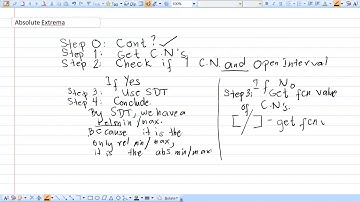 Absolute Extrema
Step 0: Cont? ✓
Step 1: Get C.N.'s
Step 2: Check if 1 C.N. and open interval
If Yes
Step 3: Use SDT
Step 4: Conclude.
By SDT, we have a
rel min/max.
Because it is the
only rel min/max,
it is the abs min/max
If No
Step 3: Get fcn value
of C.N.'s.
- get fcn